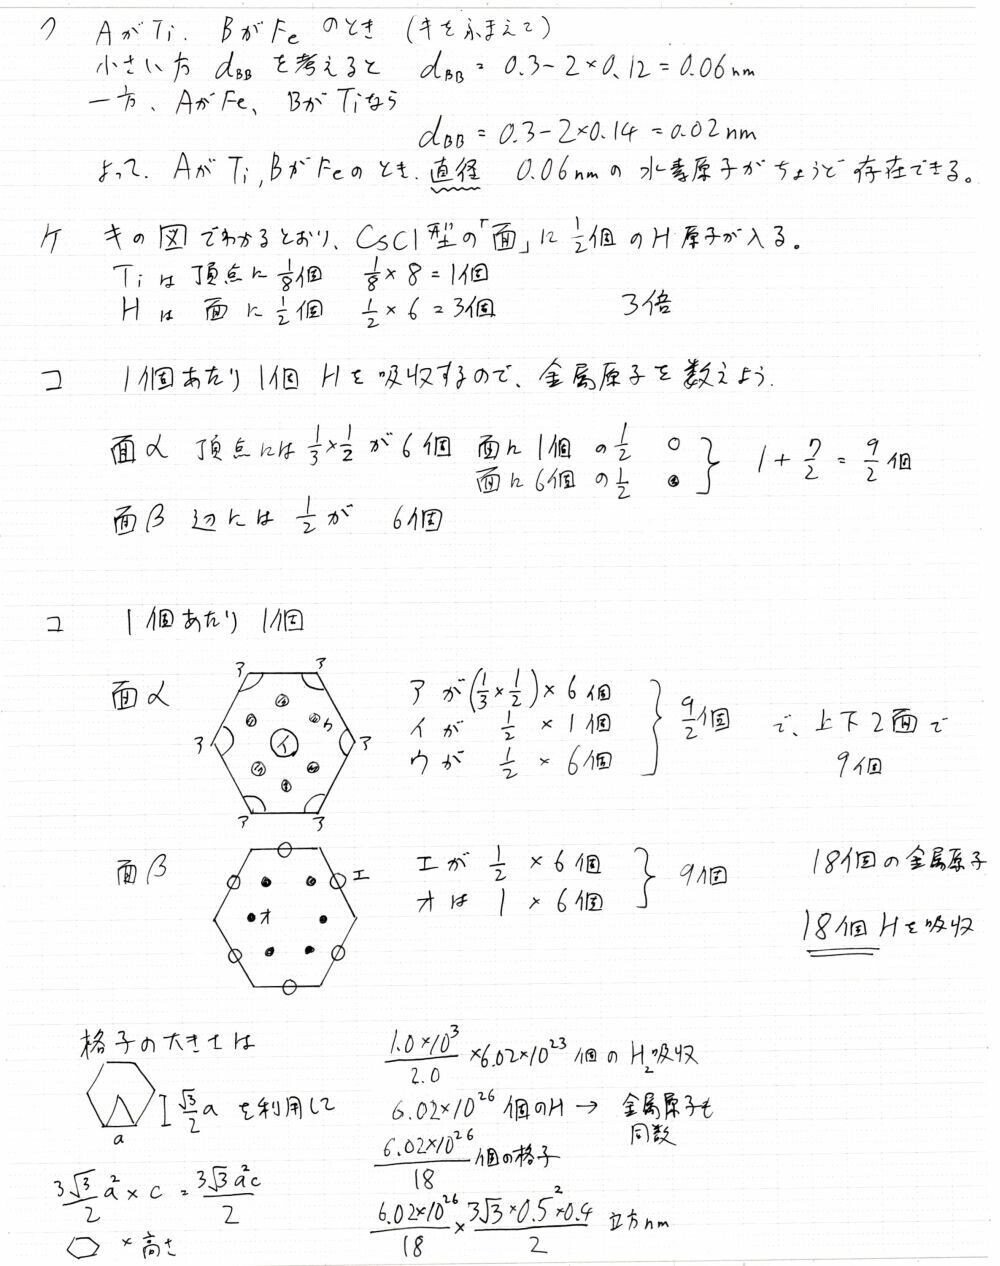 ク AがTi、BがFe のとき (キをふまえて)
小さい方 dBBを考えると dBB = 0.3-2×0.12=0.06nm
一方、AがFe、BがTiなら
dBB = 0.3-2×0.14=0.02nm
よって、AがTi,BがFeのとき、直径 0.06nmの水素原子がちょうど存在できる。
ケ キの図でわかるとおり、CsCl型の「面」に 1/2個のH原子が入る。
Tiは頂点に1/8個 1/8×8=1個
Hは面に1/2個 1/2×6=3個 3倍
コ 1個あたり1個Hを吸収するので、金属原子を数えよう.
面α 頂点には1/3×1/2が6個 面に1個の1/2 ○
面に6個の1/2 ● } 1+7/2=9/2個
面β 辺には1/2が 6個
コ 1個あたり1個
面α
ア ア
ア ウ イ ア
ア ア
アが(1/3×1/2)×6個
イが 1/2 ×1個
ウが 1/2 ×6個
} 9/2個 で、上下2面で
9個
面β
エ
オ
エが 1/2 ×6個
オは 1 ×6個
} 9個
18個の金属原子
18個Hを吸収
格子の大きさは
√3/2 a を利用して
a
3√3/2 a²×c = 3√3a²c/2
×高さ
1.0×10³/2.0 ×6.02×10²³個のH₂吸収
6.02×10²⁶個のH → 金属原子も
同数
6.02×10²⁶/18 個の格子
6.02×10²⁶/18 × 3√3×0.5²×0.4/2 立方nm